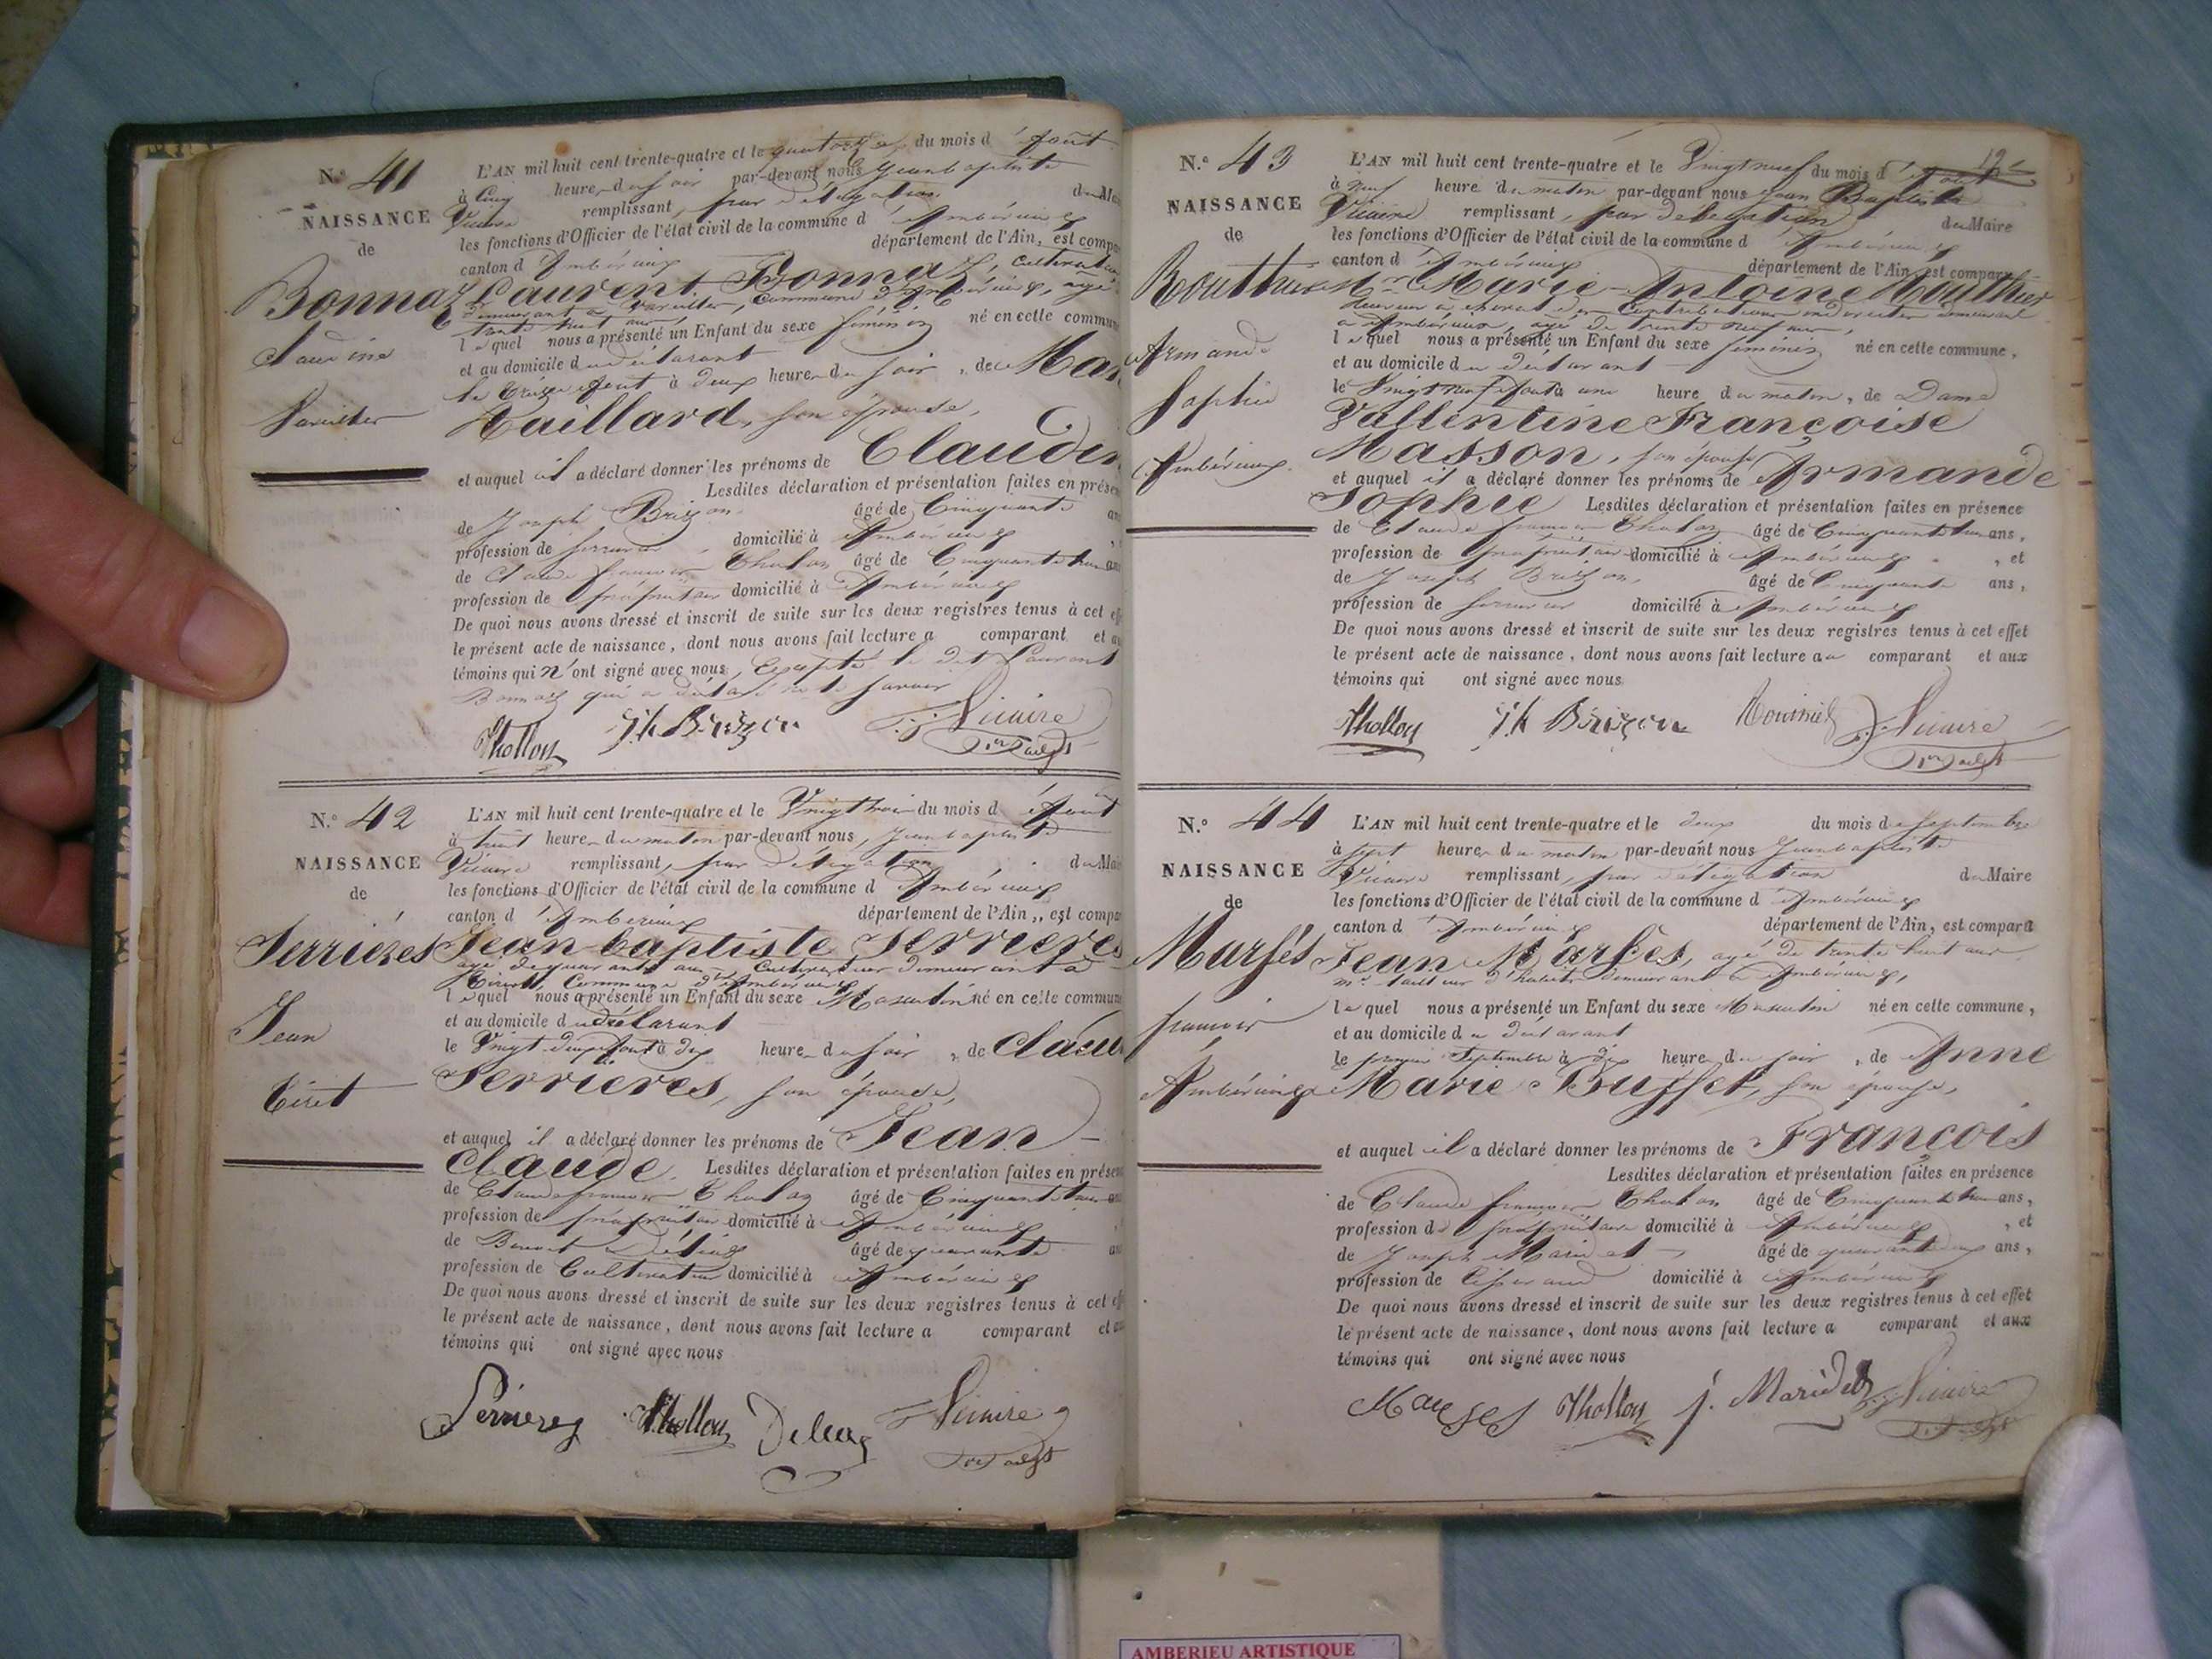 N.º 41
NAISSANCE
de
Bonnaz
Claudine
Vareilles
L'AN mil huit cent trente-quatre et le quatorze du mois d'Août
à Cinq heure du soir par-devant nous Jean baptiste
Vicaire remplissant, par délégation du Mai
les fonctions d'Officier de l'état civil de la commune d'Ambérieux
canton d'Ambérieux département de l'Ain, est compa
Laurent Bonnaz, Cultivateur
demeurant à Vareilles, Commune d'Ambérieux, agé
trente huit ans
lequel nous a présenté un Enfant du sexe féminin né en cette commun
et au domicile du déclarant
le treize Août à deux heure du soir, de Mar
Gaillard, son épouse,
et auquel il a déclaré donner les prénoms de Claudin
Lesdites déclaration et présentation faites en prése
de Joseph Brizon âgé de Cinquante an
profession de serrurier, domicilié à Ambérieux
de Claude françois Thollon âgé de Cinquante trois an
profession de propriétaire domicilié à Ambérieux
De quoi nous avons dressé et inscrit de suite sur les deux registres tenus à cet eff
le présent acte de naissance, dont nous avons fait lecture a comparant et au
témoins qui n'ont signé avec nous, Excepté le dit Laurent
Bonnaz qui a déclaré ne le savoir
Thollon Jh Brizon Vicaire
N.º 42
NAISSANCE
de
Serrières
Jean
Tiret
L'AN mil huit cent trente-quatre et le Vingt trois du mois d'Août
à huit heure du matin par-devant nous, Jean baptiste
Vicaire remplissant, par délégation du Mai
les fonctions d'Officier de l'état civil de la commune d'Ambérieux
canton d'Ambérieux département de l'Ain,, est compa
Jean baptiste Serrieres
agé de quarante ans Cultivateur demeurant à
Tiret, Commune d'Ambérieux
lequel nous a présenté un Enfant du sexe Masculin né en cette commune
et au domicile du déclarant
le Vingt deux Août à dix heure du soir, de Claud
Serrieres, son épouse,
et auquel il a déclaré donner les prénoms de Jean
Claude. Lesdites déclaration et présentation faites en prése
de Claude françois Thollon âgé de Cinquante trois an
profession de propriétaire domicilié à Ambérieux
de Benoit âgé de quarante an
profession de Cultivateur domicilié à Ambérieux
De quoi nous avons dressé et inscrit de suite sur les deux registres tenus à cet eff
le présent acte de naissance, dont nous avons fait lecture a comparant et au
témoins qui ont signé avec nous
Thollon Vicaire
12
N.º 43
NAISSANCE
de
Armande
Sophie
Ambérieux
L'AN mil huit cent trente-quatre et le Vingt neuf du mois d'Août
à neuf heure du matin par-devant nous Jean Baptiste
Vicaire remplissant, par délégation du Maire
les fonctions d'Officier de l'état civil de la commune d'Ambérieux
canton d'Ambérieux département de l'Ain, est compara
Mr Marie-Antoine Routhier
receveur à cheval des Contributions indirectes demeurant
a Ambérieux, agé de trente neuf ans,
lequel nous a présenté un Enfant du sexe féminin né en cette commune,
et au domicile du déclarant
le Vingt neuf Août à une heure du matin, de Dame
Vallentine Françoise
Masson, son épouse
et auquel il a déclaré donner les prénoms de Armande
Sophie Lesdites déclaration et présentation faites en présence
de Claude françois Thollon âgé de Cinquante trois ans,
profession de propriétaire domicilié à Ambérieux, et
de Joseph Brizon, âgé de Cinquante ans,
profession de serrurier domicilié à Ambérieux
De quoi nous avons dressé et inscrit de suite sur les deux registres tenus à cet effet
le présent acte de naissance, dont nous avons fait lecture au comparant et aux
témoins qui ont signé avec nous
Thollon Jh Brizon Vicaire
N.º 44
NAISSANCE
de
françois
Ambérieux
L'AN mil huit cent trente-quatre et le deux du mois de Septembre
à sept heure du matin par-devant nous Jean baptiste
Vicaire remplissant, par délégation du Maire
les fonctions d'Officier de l'état civil de la commune d'Ambérieux
canton d'Ambérieux département de l'Ain, est compara
Jean, agé de trente huit ans
md tailleur d'habits demeurant à Ambérieux,
lequel nous a présenté un Enfant du sexe Masculin né en cette commune,
et au domicile du déclarant
le premier Septembre à dix heure du soir, de Anne
Marie Buffet, son épouse,
et auquel il a déclaré donner les prénoms de François
Lesdites déclaration et présentation faites en présence
de Claude françois Thollon âgé de Cinquante trois ans,
profession de propriétaire domicilié à Ambérieux, et
de Joseph âgé de quarante ans,
profession de tisserand domicilié à Ambérieux
De quoi nous avons dressé et inscrit de suite sur les deux registres tenus à cet effet
le présent acte de naissance, dont nous avons fait lecture a comparant et aux
témoins qui ont signé avec nous
Thollon Vicaire
AMBERIEU ARTISTIQUE